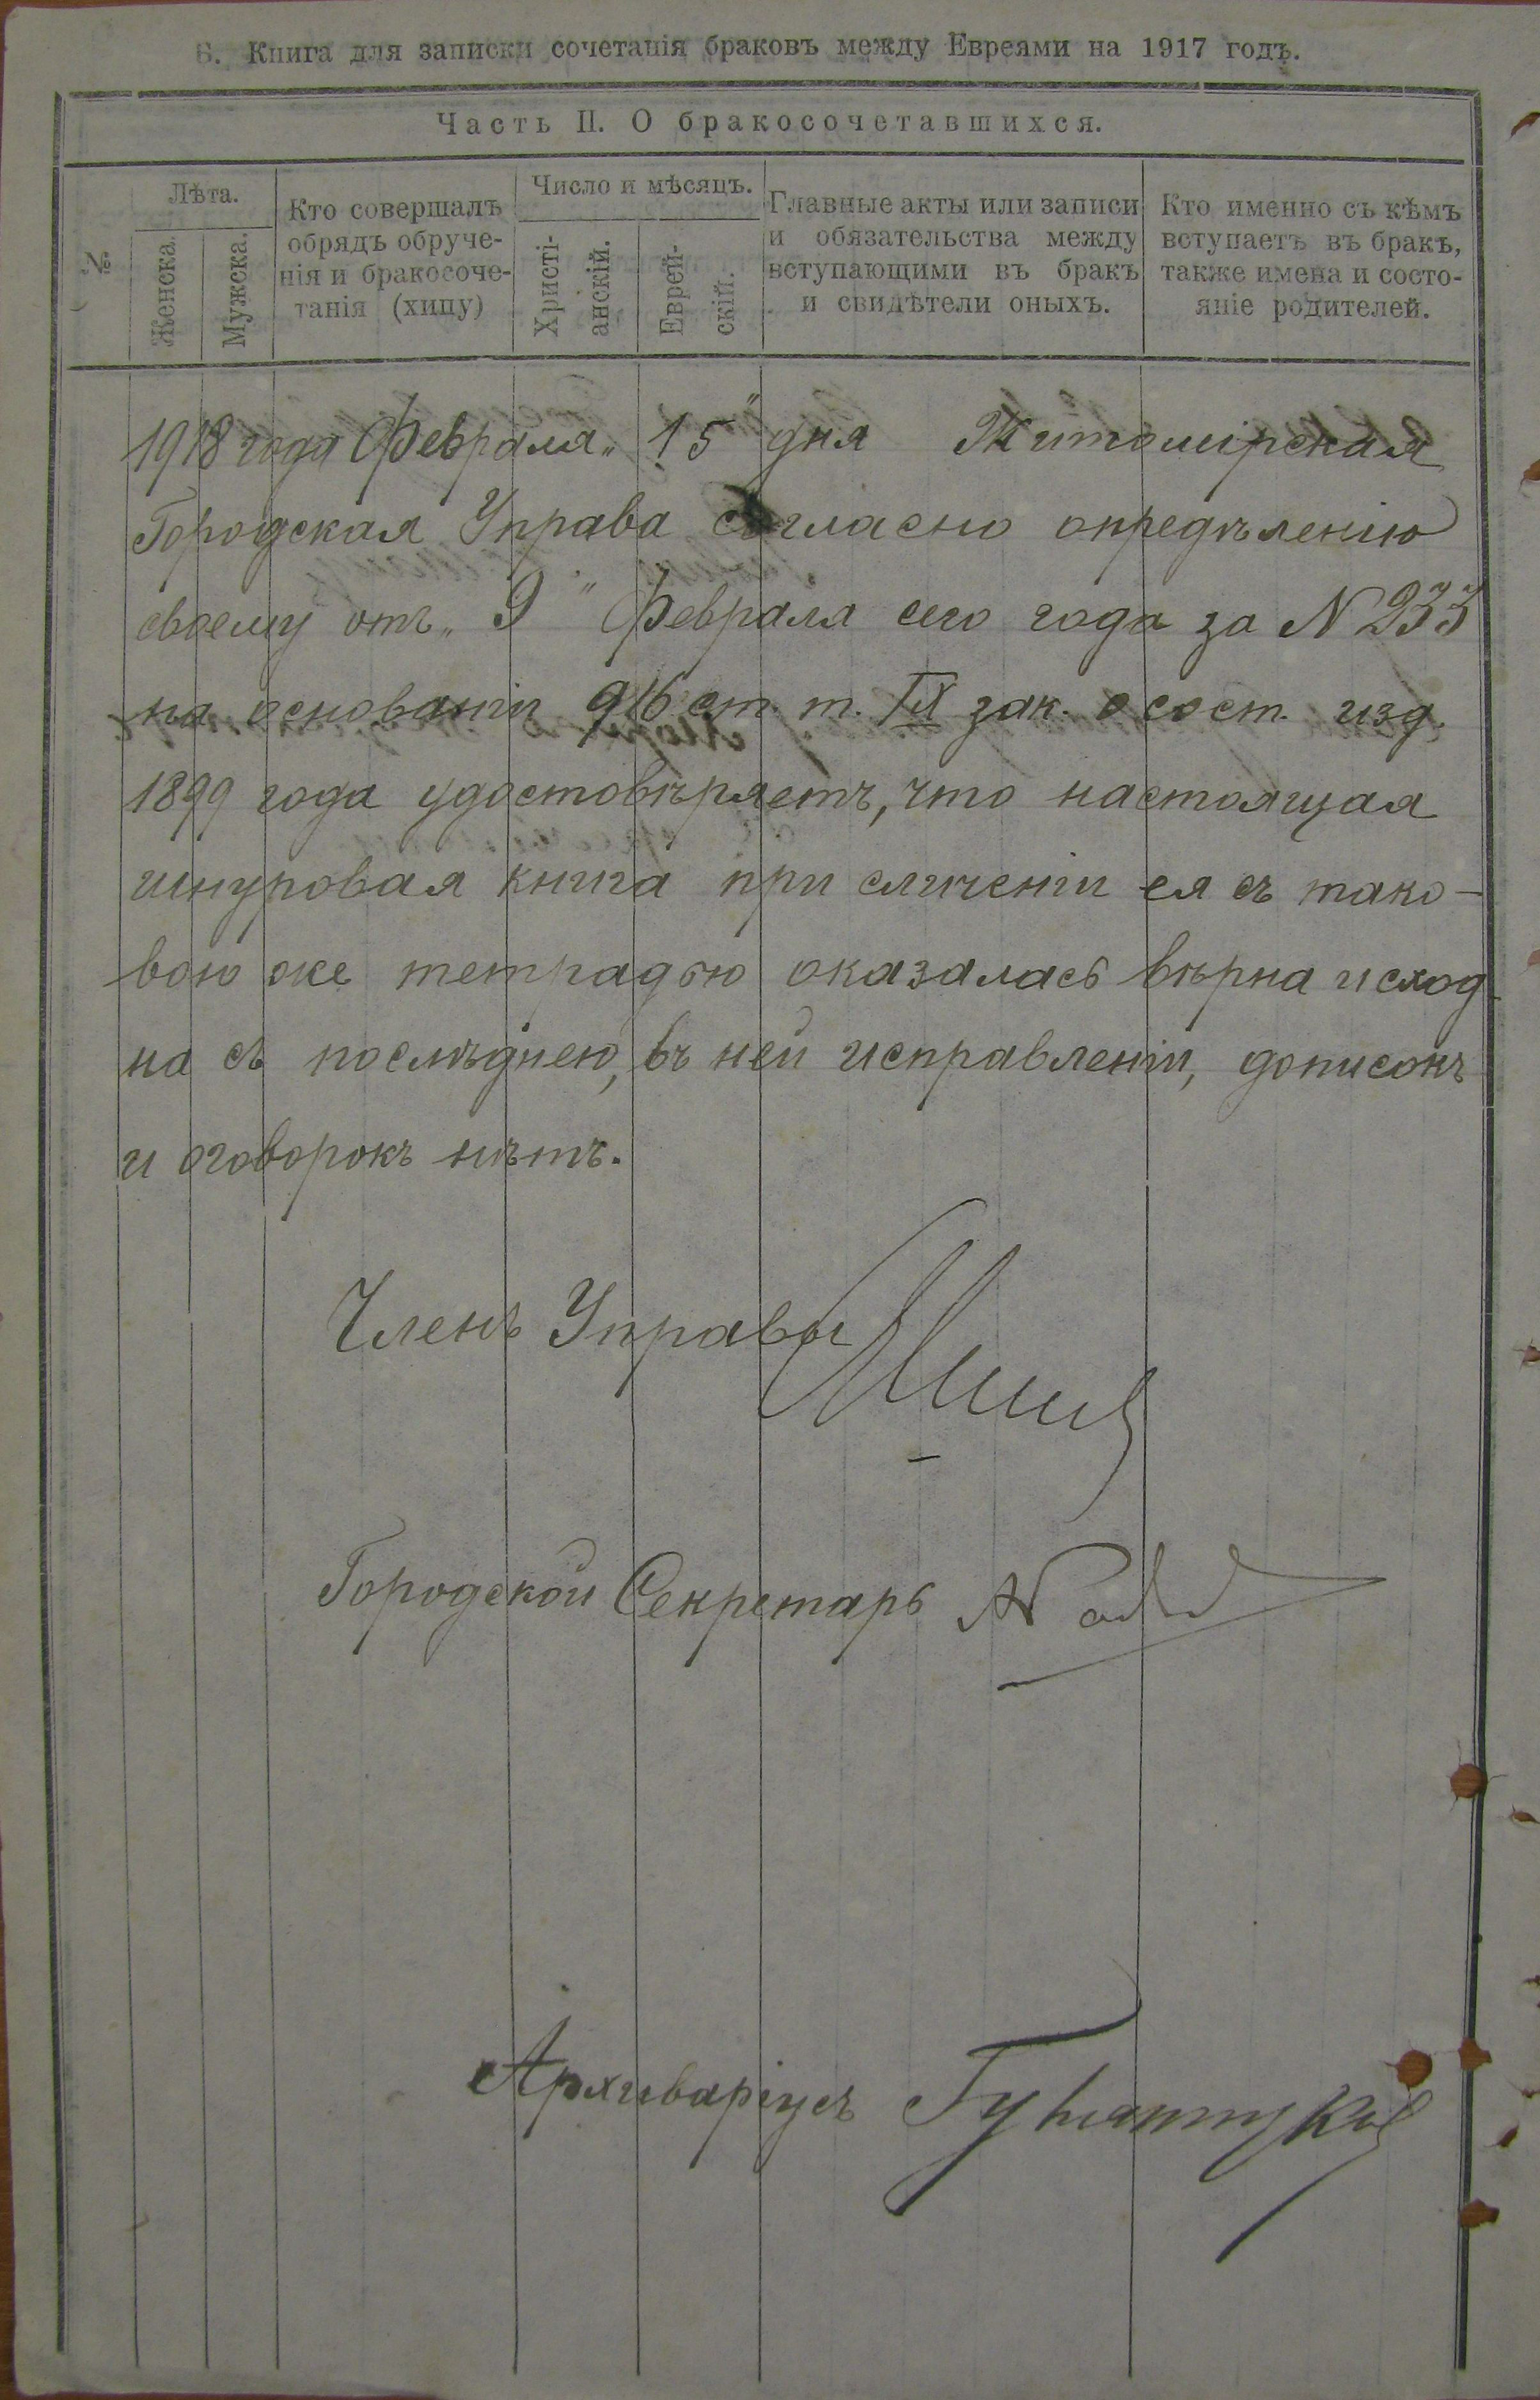 Б. Книга для записки сочетанія браковъ между Евреями на 1917 годъ.
Часть II. О бракосочетавшихся.
№
Лѣта.
Женска.
Мужска.
Кто совершалъ
обрядъ обруче-
нія и бракосоче-
танія (хипу)
Число и мѣсяцъ.
Христі-
анскій.
Еврей-
скій.
Главные акты или записи
и обязательства между
вступающими въ бракъ
и свидѣтели оныхъ.
Кто именно съ кѣмъ
вступаетъ въ бракъ,
также имена и состо-
яніе родителей.
1918 года Февраля „15" дня Житомірская
Городская Управа согласно опредѣленію
своему отъ „9" Февраля сего года за N 233
на основаніи 916 ст. т. IX зак. о сост. изд.
1899 года удостовѣряетъ, что настоящая
шнуровая книга при сличеніи ея съ тако-
вою же тетрадью оказалась вѣрна и сход-
на съ послѣднею, въ ней исправленій, дописокъ
и оговорокъ нѣтъ.
Членъ Управы
Городской Секретарь
Архиваріусъ